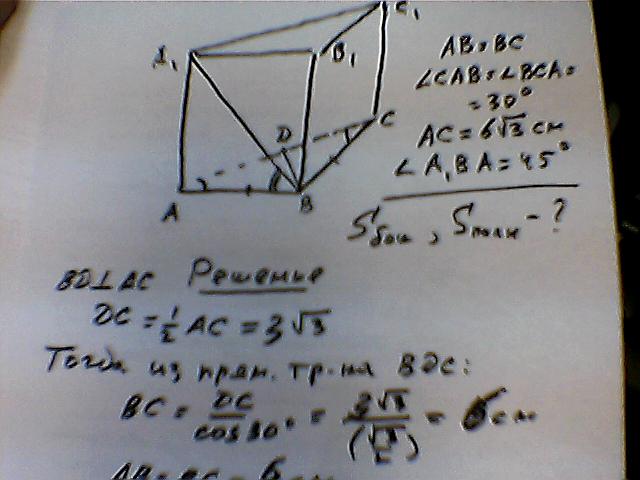 A₁ B₁ C₁
D C
A B
AB = BC
∠CAB = ∠BCA =
= 30°
AC = 6√3 см
∠A₁BA = 45°
Sбок, Sполн - ?
BD⊥AC Решенье
DC = ½ AC = 3√3
Тогда из прям. тр-ка BDC:
BC = DC/cos30° = 3√3/(√3/2) = 6 см
AB = BC = 6 см